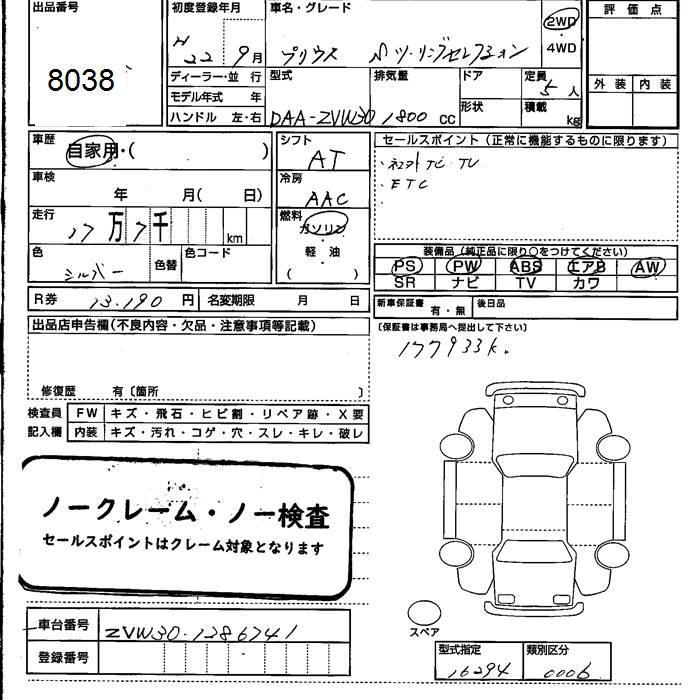 出品番号
8038
初度登録年月
H 22 9月
車名・グレード
プリウス Sツーリングセレクション
2WD
・
4WD
評価点
外装 内装
ディーラー・並 行
モデル年式 年
ハンドル 左・右
型式
DAA-ZVW30
排気量
1800 cc
ドア
形状
定員
5 人
積載
kg
車歴
自家用・( )
車検
年 月( 日)
走行
17万7千 km
色
シルバー
色替
色コード
シフト
AT
冷房
AAC
燃料
ガソリン
・
軽 油
( )
セールスポイント(正常に機能するものに限ります)
・ネオトTC・TV
・ETC
・
装備品(純正品に限り○をつけてください)
PS PW ABS エアB AW
SR ナビ TV カワ
R券 13.190 円 名変期限 月 日
新車保証書 有・無 後日品
(保証書は事務局へ提出して下さい)
177933k.
出品店申告欄(不良内容・欠品・注意事項等記載)
修復歴 有〔箇所 〕
検査員 FW キズ・飛石・ヒビ割・リペア跡・X要
記入欄 内装 キズ・汚れ・コゲ・穴・スレ・キレ・破レ
ノークレーム・ノー検査
セールスポイントはクレーム対象となります
スペア
車台番号 ZVW30-1286741
登録番号
型式指定 類別区分
16294 0006